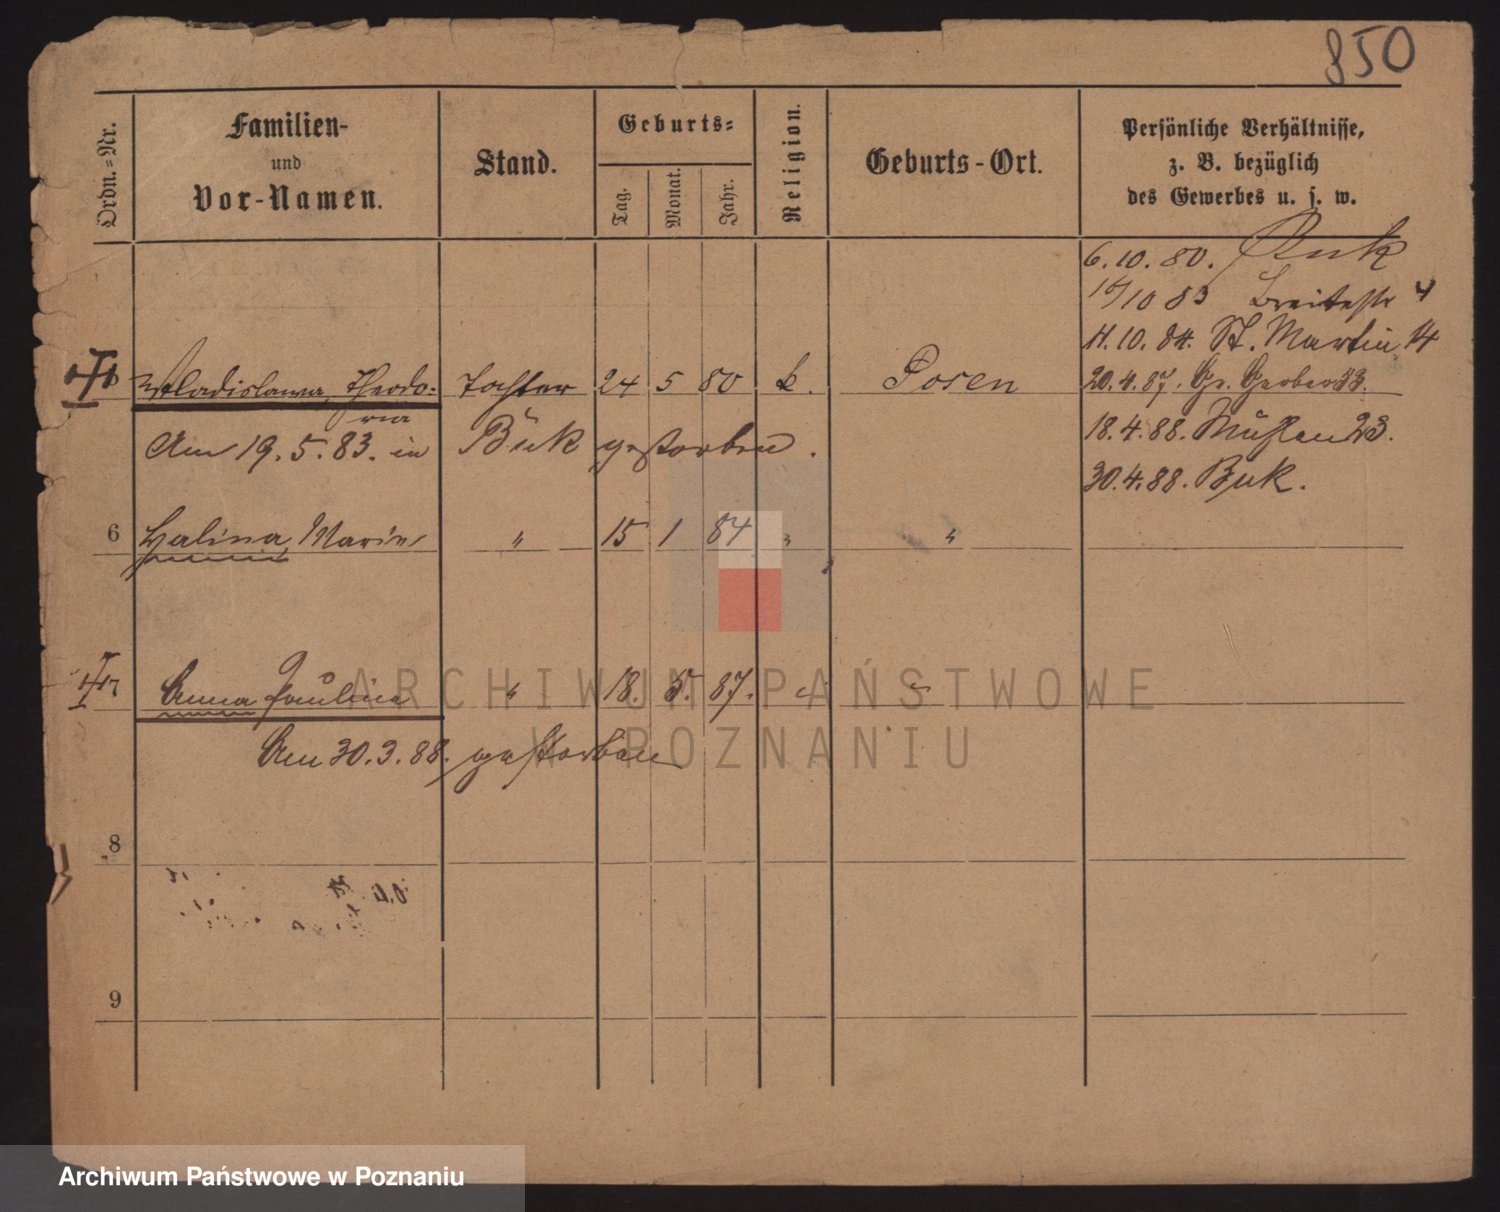 850
Ordn.-Nr.
Familien-
und
Vor-Namen.
Stand.
Geburts-
Tag.
Monat.
Jahr.
Religion.
Geburts-Ort.
Persönliche Verhältnisse,
z. B. bezüglich
des Gewerbes u. s. w.
6.10.80. Buk
10 83 Breitestr 4
11.10.84. St. Martin 14
Wladislawa, Theodo- Tochter 24 5 80 k. Posen 20.4.87. Gr. Gerber 33.
ria
Am 19.5.83. in Buk gestorben.
18.4.88. Mühlen 23.
30.4.88. Buk.
6 Halina, Marie " 15 1 84 " "
7 Anna Pauline " 18. 5. 87. " "
Am 30.3.88. gestorben
8
9
ARCHIWUM PAŃSTWOWE
W POZNANIU
Archiwum Państwowe w Poznaniu